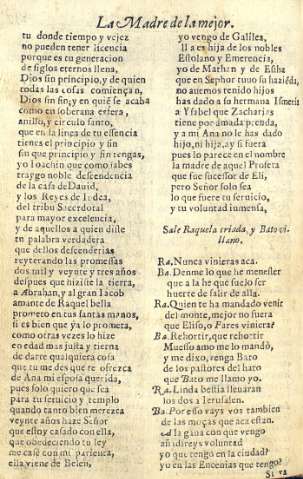 La Madre de la mejor.
tu donde tiempo y vejez
no pueden tener licencia
porque es tu generacion
de siglos eternos llena,
Dios sin principio, y de quien
todas las cosas comiençan,
Dios sin fin, y en quiẽ se acaba
como en soberana esfera,
anillo, y circulo santo,
que en la linea de tu essencia
tienes el principio y sin
fin que principio y fin tengas,
yo Ioachin que como sabes
traygo noble descendencia
de la casa de Dauid,
y los Reyes de Iudea,
del tribu Sacerdotal
para mayor excelencia,
y de aquellos a quien diste
tu palabra verdadera
que dellos descenderias
reyterando las promessas
dos mil y veynte y tres años
despues que hiziste la tierra,
a Abrahan, y al gran Iacob
amante de Raquel bella
prometo en tus santas manos,
si es bien que yà lo prometa,
como otras vezes lo hize
en edad mas justa y tierna
de darte qualquiera cosa
que tu me des que te ofrezca
de Ana mi esposa querida,
pues solo quiero que sea
para tu seruicio y templo
quando tanto bien merezca
veynte años haze Señor
que estoy casado con ella,
que obedeciendo tu ley
me casè con mi parienta,
ella viene de Belen,
yo vengo de Galilea,
ella es hija de los nobles
Estolano y Emerencia,
yo de Mathan y de Estha
que en Sephor tuuo su haziẽda,
no auemos tenido hijos
has dado a su hermana Ismeria
a Ysabel que Zacharias
tiene por amada prenda,
y a mi Ana no le has dado
hijo, ni hija, ay si fuera
pues lo parece en el nombre
la madre de aquel Profeta
que fue sucessor de Eli,
pero Señor solo sea
lo que fuere tu seruicio,
y tu voluntad inmensa,
Sale Raquela criada, y Bato vi-
llano.
Ra. Nunca vinieras aca.
Ba. Denme lo que he menester
que a la he que suelo ser
huerte de salir de alla.
Ra. Quien te ha mandado venir
del monte, mejor no fuera
que Eliso, o Fares viniera?
Ba. Rehortir, que rehortir
Muesso amo me lo mandò,
y me dixo, venga Bato
de los pastores del hato
que Bato me llamo yo.
Ra. Linda bestia lleuaran
los dos a Ierusalen.
Ba. Por esso vays vos tambien
de las moças que aca estan.
A la gana con que vengo
añidireys voluntad
yo que tengo en la ciudad?
yo en las Encenias que tengo?